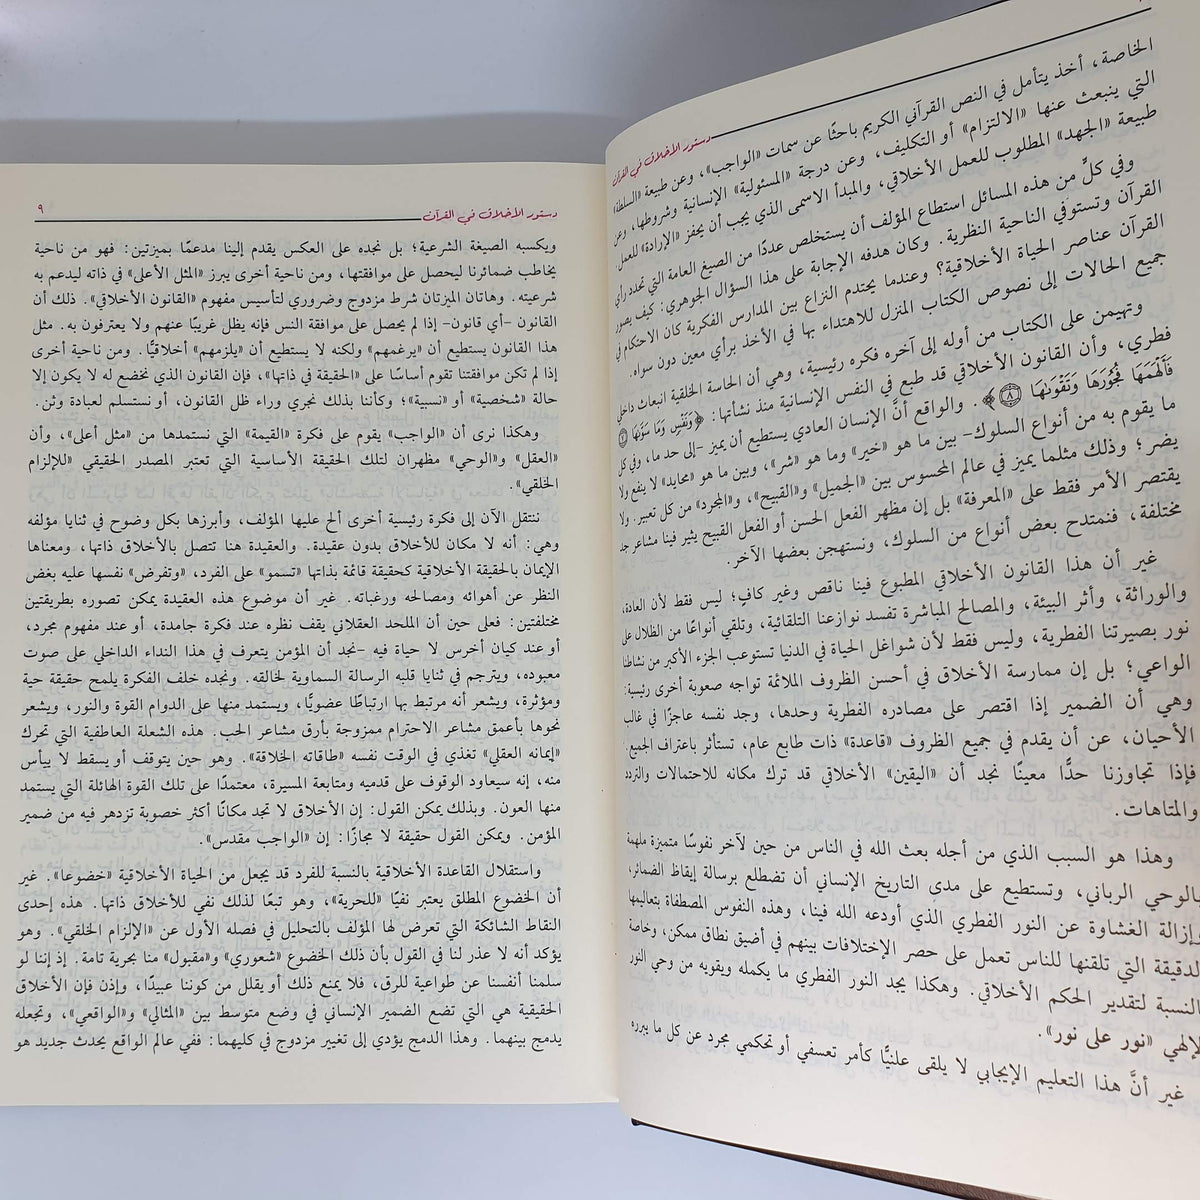 دستور الأخلاق في القرآن
الخاصة، أخذ يتأمل في النص القرآني الكريم باحثًا عن سمات «الواجب»، وعن طبيعة «السلطة»
التي ينبعث عنها «الالتزام» أو التكليف، وعن درجة «المسئولية» الإنسانية وشروطها، وعن
طبيعة «الجهد» المطلوب للعمل الأخلاقي، والمبدأ الاسمى الذي يجب أن يحفز «الإرادة» للعمل.
وفي كلٍّ من هذه المسائل استطاع المؤلف أن يستخلص عددًا من الصيغ العامة التي تحدد رأي
القرآن وتستوفي الناحية النظرية. وكان هدفه الإجابة على هذا السؤال الجوهري: كيف يصور
القرآن عناصر الحياة الأخلاقية؟ وعندما يحتدم النزاع بين المدارس الفكرية كان الاحتكام في
جميع الحالات إلى نصوص الكتاب المنزل للاهتداء بها في الأخذ برأي معين دون سواه.
وتهيمن على الكتاب من أوله إلى آخره فكره رئيسية، وهي أن الحاسة الخلقية انبعاث داخلي
فطري، وأن القانون الأخلاقي قد طبع في النفس الإنسانية منذ نشأتها: ﴿وَنَفْسٍ وَمَا سَوَّىٰهَا ۝٧
فَأَلْهَمَهَا فُجُورَهَا وَتَقْوَىٰهَا ۝٨﴾. والواقع أنَّ الإنسان العادي يستطيع أن يميز -إلى حد ما، وفي كل
ما يقوم به من أنواع السلوك- بين ما هو «خير» وما هو «شر»، وبين ما هو «محايد» لا ينفع ولا
يضر؛ وذلك مثلما يميز في عالم المحسوس بين «الجميل» و«القبيح»، و«المجرد» من كل تعبير. ولا
يقتصر الأمر فقط على «المعرفة» بل إن مظهر الفعل الحسن أو الفعل القبيح يثير فينا مشاعر جد
مختلفة، فنمتدح بعض أنواع من السلوك، ونستهجن بعضها الآخر.
غير أن هذا القانون الأخلاقي المطبوع فينا ناقص وغير كافٍ؛ ليس فقط لأن العادة،
والوراثة، وأثر البيئة، والمصالح المباشرة تفسد نوازعنا التلقائية، وتلقي أنواعًا من الظلال على
نور بصيرتنا الفطرية، وليس فقط لأن شواغل الحياة في الدنيا تستوعب الجزء الأكبر من نشاطنا
الواعي؛ بل إن ممارسة الأخلاق في أحسن الظروف الملائمة تواجه صعوبة أخرى رئيسية:
وهي أن الضمير إذا اقتصر على مصادره الفطرية وحدها، وجد نفسه عاجزًا في غالب
الأحيان، عن أن يقدم في جميع الظروف «قاعدة» ذات طابع عام، تستأثر باعتراف الجميع.
فإذا تجاوزنا حدًّا معينًا نجد أن «اليقين» الأخلاقي قد ترك مكانه للاحتمالات والتردد
والمتاهات.
وهذا هو السبب الذي من أجله بعث الله في الناس من حين لآخر نفوسًا متميزة ملهمة
بالوحي الرباني، وتستطيع على مدى التاريخ الإنساني أن تضطلع برسالة إيقاظ الضمائر،
وإزالة الغشاوة عن النور الفطري الذي أودعه الله فينا، وهذه النفوس المصطفاة بتعاليمها
الدقيقة التي تلقنها للناس تعمل على حصر الإختلافات بينهم في أضيق نطاق ممكن، وخاصة
بالنسبة لتقدير الحكم الأخلاقي. وهكذا يجد النور الفطري ما يكمله ويقويه من وحي النور
الإلهي «نور على نور».
غير أنَّ هذا التعليم الإيجابي لا يلقى علنيًّا كأمر تعسفي أو تحكمي مجرد عن كل ما يبرره
دستور الأخلاق في القرآن ٩
ويكسبه الصيغة الشرعية؛ بل نجده على العكس يقدم إلينا مدعمًا بميزتين: فهو من ناحية
يخاطب ضمائرنا ليحصل على موافقتها، ومن ناحية أخرى يبرز «المثل الأعلى» في ذاته ليدعم به
شرعيته. وهاتان الميزتان شرط مزدوج وضروري لتأسيس مفهوم «القانون الأخلاقي». ذلك أن
القانون -أي قانون- إذا لم يحصل على موافقة النس فإنه يظل غريبًا عنهم ولا يعترفون به. مثل
هذا القانون يستطيع أن «يرغمهم» ولكنه لا يستطيع أن «يلزمهم» أخلاقيًّا. ومن ناحية أخرى
إذا لم تكن موافقتنا تقوم أساسًا على «الحقيقة في ذاتها»، فإن القانون الذي نخضع له لا يكون إلا
حالة «شخصية» أو «نسبية»؛ وكأننا بذلك نجري وراء ظل القانون، أو نستسلم لعبادة وثن.
وهكذا نرى أن «الواجب» يقوم على فكرة «القيمة» التي نستمدها من «مثل أعلى»، وأن
«العقل» و«الوحي» مظهران لتلك الحقيقة الأساسية التي تعتبر المصدر الحقيقي «للإلزام
الخلقي».
ننتقل الآن إلى فكرة رئيسية أخرى ألح عليها المؤلف، وأبرزها بكل وضوح في ثنايا مؤلفه
وهي: أنه لا مكان للأخلاق بدون عقيدة. والعقيدة هنا تتصل بالأخلاق ذاتها، ومعناها
الإيمان بالحقيقة الأخلاقية كحقيقة قائمة بذاتها «تسمو» على الفرد، «وتفرض» نفسها عليه بغض
النظر عن أهوائه ومصالحه ورغباته. غير أن موضوع هذه العقيدة يمكن تصوره بطريقتين
مختلفتين: فعلى حين أن الملحد العقلاني يقف نظره عند فكرة جامدة، أو عند مفهوم مجرد،
أو عند كيان أخرس لا حياة فيه -نجد أن المؤمن يتعرف في هذا النداء الداخلي على صوت
معبوده، ويترجم في ثنايا قلبه الرسالة السماوية لخالقه. ونجده خلف الفكرة يلمح حقيقة حية
ومؤثرة، ويشعر أنه مرتبط بها ارتباطًا عضويًّا، ويستمد منها على الدوام القوة والنور، ويشعر
نحوها بأعمق مشاعر الاحترام ممزوجة بأرق مشاعر الحب. هذه الشعلة العاطفية التي تحرك
«إيمانه العقلي» تغذي في الوقت نفسه «طاقاته الخلاقة». وهو حين يتوقف أو يسقط لا ييأس
منه، إنه سيعاود الوقوف على قدميه ومتابعة المسيرة، معتمدًا على تلك القوة الهائلة التي يستمد
منها العون. وبذلك يمكن القول: إن الأخلاق لا تجد مكانًا أكثر خصوبة تزدهر فيه من ضمير
المؤمن. ويمكن القول حقيقة لا مجازًا: إن «الواجب مقدس».
واستقلال القاعدة الأخلاقية بالنسبة للفرد قد يجعل من الحياة الأخلاقية «خضوعا». غير
أن الخضوع المطلق يعتبر نفيًا «للحرية»، وهو تبعًا لذلك نفي للأخلاق ذاتها. هذه إحدى
النقاط الشائكة التي تعرض لها المؤلف بالتحليل في فصله الأول عن «الإلزام الخلقي». وهو
يؤكد أنه لا عذر لنا في القول بأن ذلك الخضوع «شعوري» و«مقبول» منا بحرية تامة. إذ إننا لو
سلمنا أنفسنا عن طواعية للرق، فلا يمنع ذلك أو يقلل من كوننا عبيدًا، وإذن فإن الأخلاق
الحقيقية هي التي تضع الضمير الإنساني في وضع متوسط بين «المثالي» و«الواقعي»، وتجعله
يدمج بينهما. وهذا الدمج يؤدي إلى تغيير مزدوج في كليهما: ففي عالم الواقع يحدث جديد هو